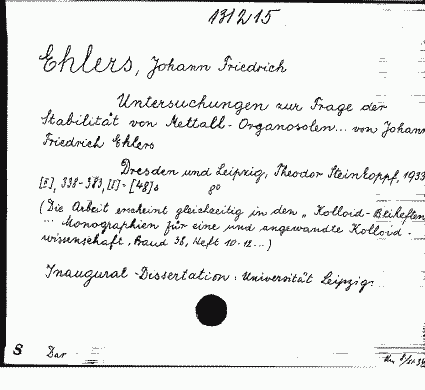 131215
Ehlers, Johann Friedrich
Untersuchungen zur Frage der
Stabilität von Mettall-Organosolen... von Johann
Friedrich Ehlers
Dresden und Leipzig, Theodor Steinkopff, 1933
338-383, 8°
(Die Arbeit erscheint gleichzeitig in den „Kolloid-Beiheften
... Monographien für eine und angewandte Kolloid-
wissenschaft, Band 38, Heft 10-12...)
Inaugural-Dissertation: Universität Leipzig.
S Dar